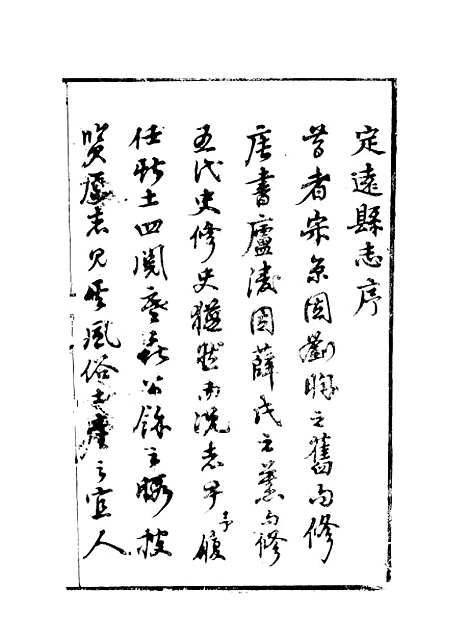 定遠縣志序
昔者宋景因劉昫之舊而修
唐書廬陵因薛氏之業而修
五代史修史猶然而況志乎予履
任斯土四閱寒暑公餘之暇披
覽舊志見其風俗土產之宜人